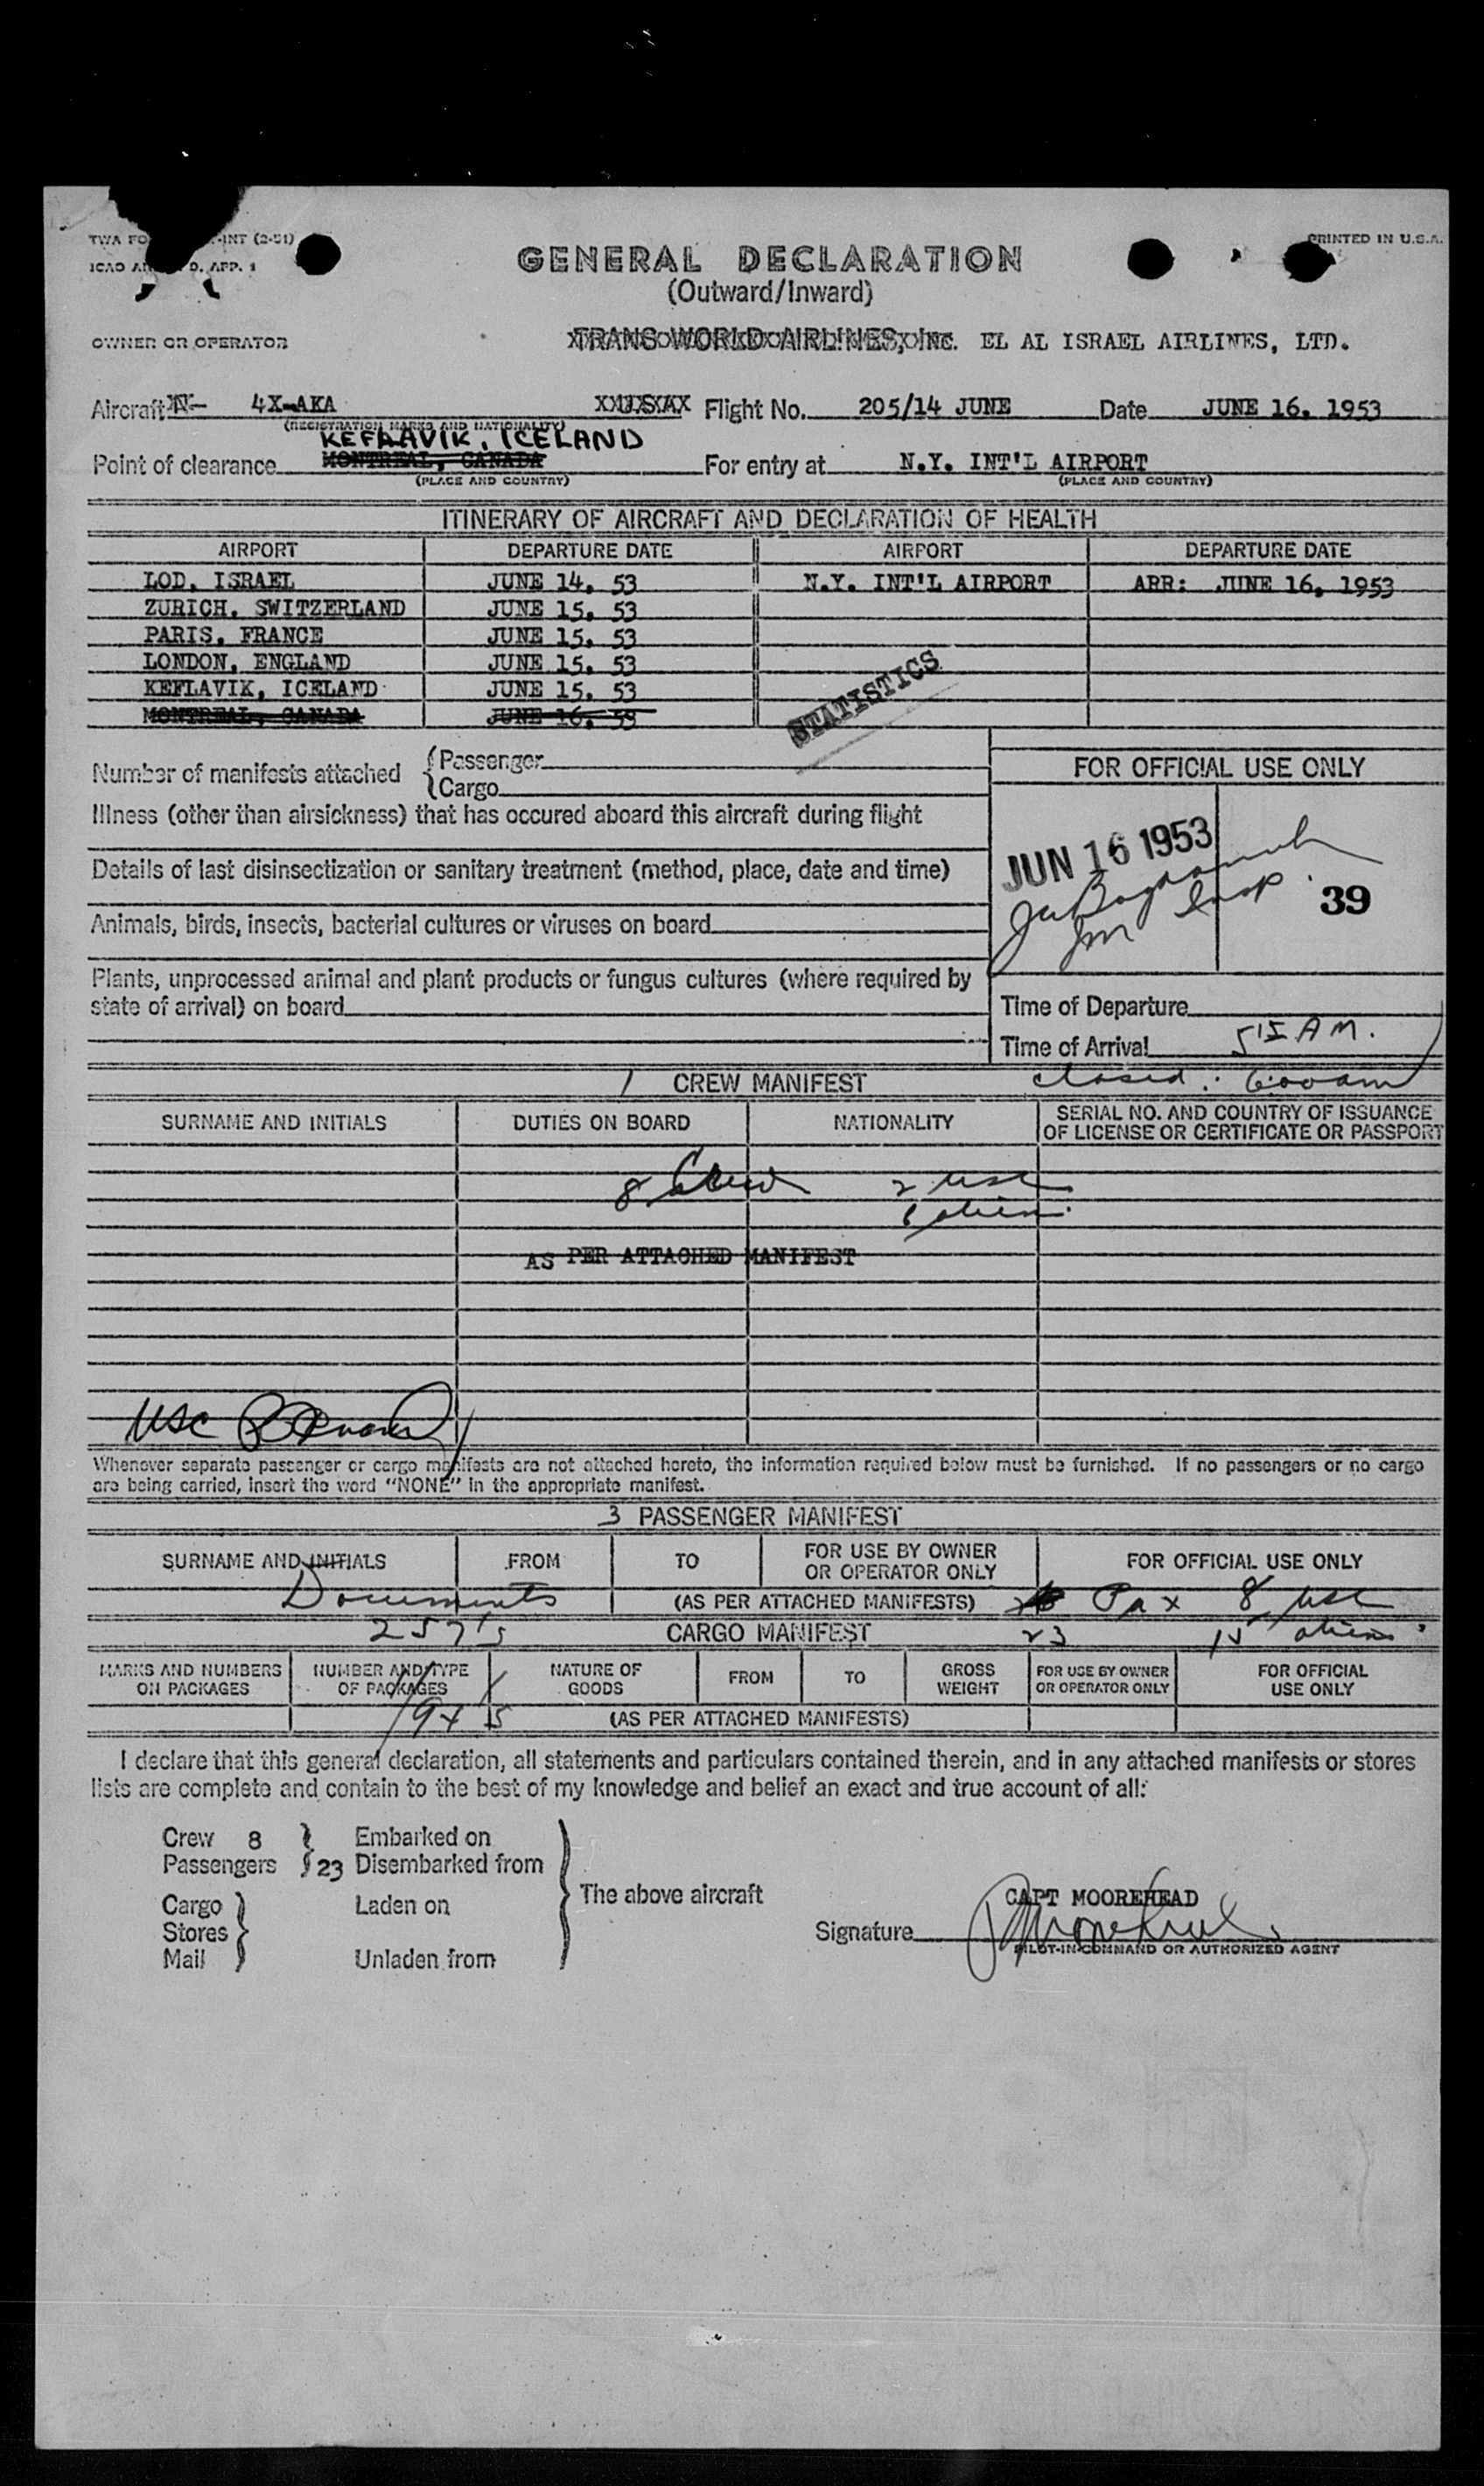 TWA FO -INT (2-51)
PRINTED IN U.S.A.
ICAO AN D. APP. 1
GENERAL DECLARATION
(Outward/Inward)
OWNER OR OPERATOR TRANS WORLD AIRLINES, INC. EL AL ISRAEL AIRLINES, LTD.
Aircraft N- 4X-AKA U.S.A. Flight No. 205/14 JUNE Date JUNE 16, 1953
(REGISTRATION MARKS AND NATIONALITY)
KEFLAVIK, ICELAND
Point of clearance MONTREAL, CANADA For entry at N.Y. INT'L AIRPORT
(PLACE AND COUNTRY) (PLACE AND COUNTRY)
ITINERARY OF AIRCRAFT AND DECLARATION OF HEALTH
AIRPORT DEPARTURE DATE AIRPORT DEPARTURE DATE
LOD, ISRAEL JUNE 14, 53 N.Y. INT'L AIRPORT ARR: JUNE 16, 1953
ZURICH, SWITZERLAND JUNE 15, 53
PARIS, FRANCE JUNE 15, 53
LONDON, ENGLAND JUNE 15, 53
KEFLAVIK, ICELAND JUNE 15, 53
MONTREAL, CANADA JUNE 16, 53
STATISTICS
Number of manifests attached { Passenger
Cargo
FOR OFFICIAL USE ONLY
Illness (other than airsickness) that has occured aboard this aircraft during flight
JUN 16 1953
Details of last disinsectization or sanitary treatment (method, place, date and time)
39
Animals, birds, insects, bacterial cultures or viruses on board
Plants, unprocessed animal and plant products or fungus cultures (where required by
state of arrival) on board
Time of Departure
Time of Arrival 5 15 AM.
1 CREW MANIFEST closed: 6:00 am
SURNAME AND INITIALS DUTIES ON BOARD NATIONALITY SERIAL NO. AND COUNTRY OF ISSUANCE
OF LICENSE OR CERTIFICATE OR PASSPORT
8 Crew 2 usc
6 aliens
AS PER ATTACHED MANIFEST
USC
Whenever separate passenger or cargo manifests are not attached hereto, the information required below must be furnished. If no passengers or no cargo
are being carried, insert the word "NONE" in the appropriate manifest.
3 PASSENGER MANIFEST
SURNAME AND INITIALS FROM TO FOR USE BY OWNER
OR OPERATOR ONLY FOR OFFICIAL USE ONLY
Documents (AS PER ATTACHED MANIFESTS) Pax 8 usc
257's CARGO MANIFEST 23 15 aliens
MARKS AND NUMBERS
ON PACKAGES NUMBER AND TYPE
OF PACKAGES NATURE OF
GOODS FROM TO GROSS
WEIGHT FOR USE BY OWNER
OR OPERATOR ONLY FOR OFFICIAL
USE ONLY
(AS PER ATTACHED MANIFESTS)
I declare that this general declaration, all statements and particulars contained therein, and in any attached manifests or stores
lists are complete and contain to the best of my knowledge and belief an exact and true account of all:
Crew 8 Embarked on
Passengers 23 Disembarked from
Cargo Laden on The above aircraft CAPT MOOREHEAD
Stores Signature
PILOT-IN-COMMAND OR AUTHORIZED AGENT
Mail Unladen from